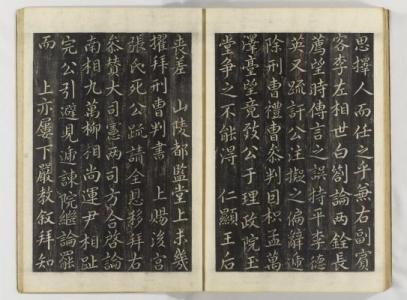 思擇人而任之乎無右副賓
客李左相世白箚論兩銓長
薦望時傳言之誤持平李德
英又疏訐公注擬之偏辭遞
除刑曹禮曹參判因积孟萬
澤臺望竟敍公于理政院玉
堂爭之不能得 仁顯王后
喪差 山陵都監堂上未幾
擢拜刑曹判書 上賜後宮
張氏死公疏請全恩移拜右
參賛大司憲兩司方合啓論
南相九萬柳相尚運尹相趾
完公引避見遞諫院繼論罷
而 上亦屢下嚴敎敘拜知